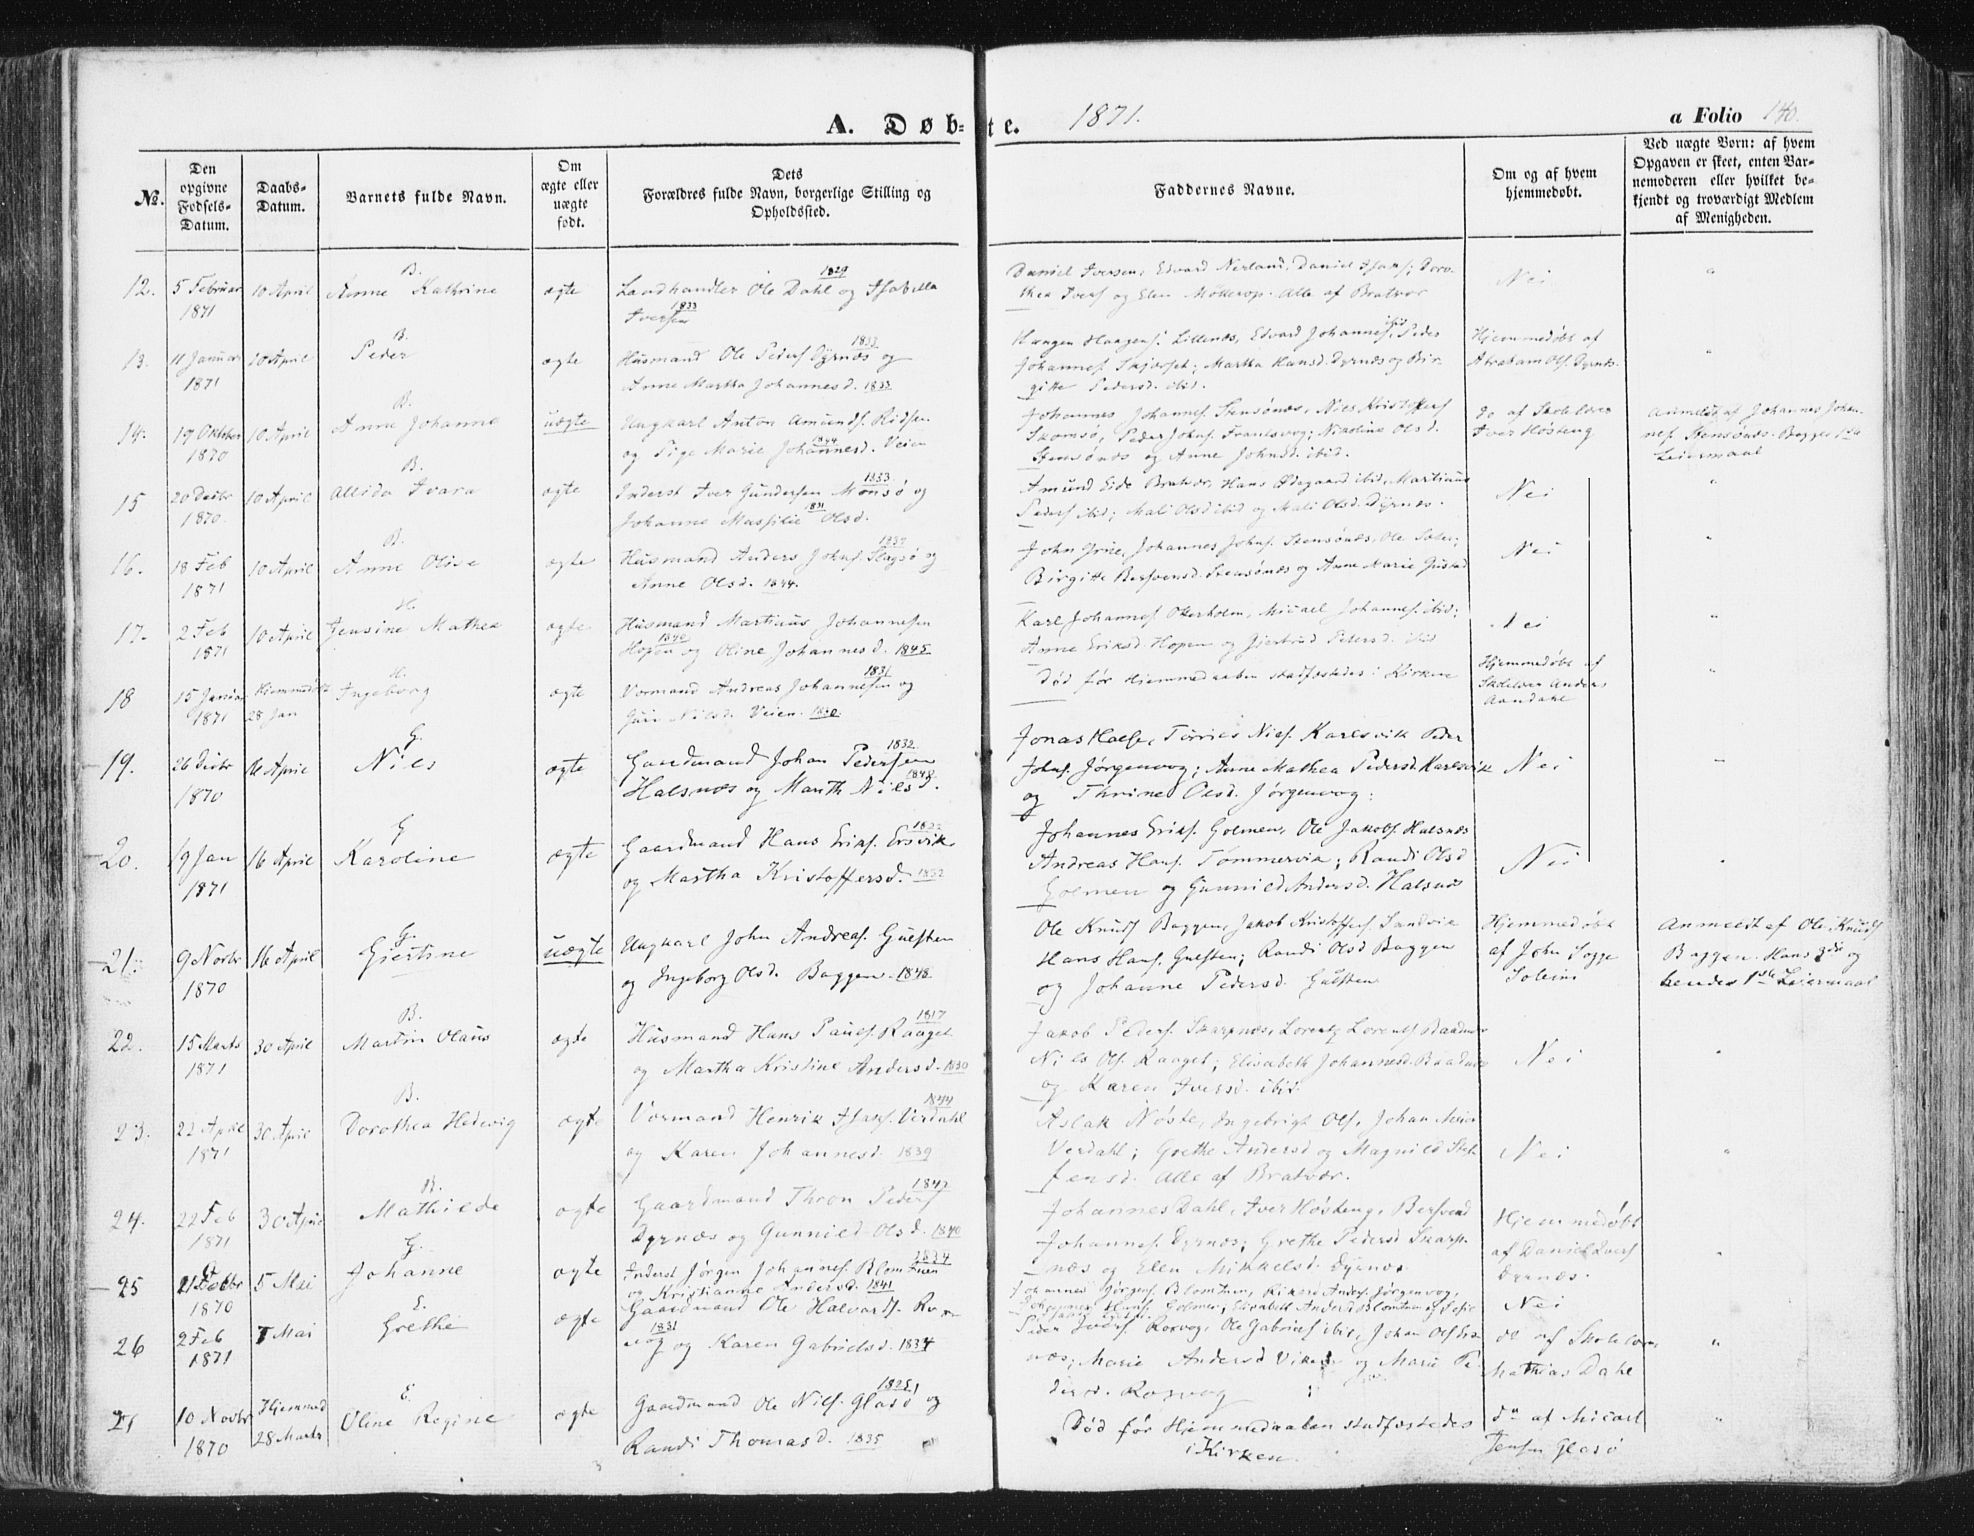 A. Døb-te. 1871. a Folio 140.
№.
Den opgivne Fødsels-Datum.
Daabs-Datum.
Barnets fulde Navn.
Om ægte eller uægte født.
Dets
Forældres fulde Navn, borgerlige Stilling og
Opholdssted.
Faddernes Navne.
Om og af hvem
hjemmedøbt.
Ved uægte Børn: af hvem
Opgaven er skeet, enten Bar-
nemoderen eller hvilket be-
kjendt og troværdigt Medlem
af Menigheden.
12. 5 Februar 1871 10 April
B.
Anne Kathrine
ægte
1829
Landhandler Ole Dahl og Isabella
1833
Iversen
Daniel Iversen, Edvard Nerland, Daniel Isaks; Doro-
thea Ivers og Elen Møllerop. Alle af Bratvær
Nei
"
13. 11 Januar 1871 10 April
B.
Peder
ægte
Husmand Ole Peders Dyrnæs og
Anne Martha Johannesd. 1833
Haagen Haagens. Lillenæs, Edvard Johannes. ibid, Peder
Johannes. ; Martha Hansd. Dyrnæs og Bir-
gitte Pedersd. ibid.
Hjemmedøbt af
Abraham Ols. Dyrnæs.
"
14. 19 Oktober 1870 10 April
B.
Anne Johanna
uægte
Ungkarl Anton Amunds.
1844
og Pige Marie Johannesd. Veien
Johannes Johannes. Stensønæs, Niels Kristoffers
Skomsø, Peder Johns. ; Nikoline Olsd.
Stensønæs og Anne Johnsd. ibid.
do af Skolelærer
Iver Høsteng
Anmeldt af Johannes Johan-
nes. Stensønæs. Begges 1ste
Leiermaal
15 20 Decbr 1870. 10 April
B.
Allida Ivara
ægte
1833
Inderst Iver Gundersen Monsø og
1831
Johanne Olsd.
Amund Eide Bratvær, Hans Ødegaard ibid, Martinus
Peders ibid; Mali Olsd ibid og Mali Olsd. Dyrnæs.
Nei
"
16. 18 Feb 1871 10 April
B.
Anne Olive
ægte
Husmand Anders Johns. Slagsø og
Anne Olsd. 1844.
John Johannes Johns. Stensønæs, Ole
Birgitte Bersvensd. Stensønæs og Anne Marie
Nei
"
17. 2 Feb 1871 10 April
H.
Jensine Mathea
ægte
Husmand Martinus Johannesen
1840
Hopen og Oline Johannesd. 1845
Karl Johannes Okerholm, Micael Johannes. ibid;
Anne Eriksd. Hopen og Gjertrud Petersd. ibid
Nei
"
18 15 Januar 1871 Hjemmedøbt 28 Jan
H.
Ingeborg
ægte
1831
Vormand Andreas Johannesen og
Guri Nilsd. Veien.
Død før Hjemmedaaben stadfæstedes i Kirken
Hjemmedøbt af
Skolelær Anders
Aandahl
"
19. 26 Decbr 1870 16 April
G.
Niels
ægte
1832.
Gaardmand Johan Pedersen
1848
Halsnæs og Marith Nilsd.
Jonas Halse, Tørris Niels. Karlsvik Peder
Johns. Jørgenvog; Anne Mathea Pedersd. Karlsvik
og Thrine Olsd. Jørgenvog.
Nei
"
20. 19 Jan 1871 16 April
G
Karoline
ægte
Gaardmand Hans Eriks. Ersvik.
og Martha Kristoffersd. 1832
Johannes Eriks. Golmen, Ole Jakobs. Halsnæs
Andreas Hans. Tømmervik; Randi Olsd
Golmen og Gunnild Andersd. Halsnæs
Nei
"
21. 9 Novbr 1870 16 April
G.
Gjertine
uægte
Ungkarl John Andreas. Gulsten
og Ingeborg Olsd. Baggen. 1848.
Ole Knuds Baggen, Jakob Kristoffers. Sandvik
Hans Hans. Gulsten; Randi Olsd Baggen
og Johanne Pedersd. Gulsten
Hjemmedøbt
af John Sogge
Soleim
Anmeldt af Ole Knuds
Baggen. Hans 3die og
hendes 1ste Leiermaal
22. 15 Marts 1871 30 April
B.
Martin Olaus
ægte
1817
Husmand Hans Pauls. Raaget
og Martha Kristine Andersd. 1830
Jakob Peders. Skarpnæs, Lorents Lorents
Niels Ols. Raaget; Elisabeth Johannesd.
og Karen Iversd. ibid.
Nei
"
23. 22 April 1871 30 April
B.
Dorothea Hedevig
ægte
1844
Vormand Henrik Isaks. Verdahl
og Karen Johannesd. 1839
Aslak Nøste, Ingebrigt Ols, Johan
Verdahl; Grethe Andersd og Magnild Stef-
fensd. Alle af Bratvær.
Nei
"
24. 22 Feb 1871 30 April
B.
Mathilde
ægte
1842
Gaardmand Thron Peders
Dyrnæs og Gunnild Olsd. 1840
Johannes Dahl, Iver Høsteng, Bersvend
Johannes. Dyrnæs; Grethe Pedersd Skarp-
næs og Elen Mikkelsd. Dyrnæs
Hjemmedøbt
af Daniel Ivers
Dyrnæs.
"
25 1870 5 Mai
G.
Johanne
ægte
1834
Inderst Jørgen Johannes. Blomtuen
og Kristianne Andersd. 1841
Johannes Jørgens. Blomtuen, Rikard Anders. Jørgenvog,
Johannes Hans. Golmen; Elisabeth Andersd Blomtuen og
Nei
26 2 Feb 1871 7 Mai
E.
Grethe
ægte
Gaardmand Ole Halvords. Rox-
1831
vog og Karen Gabrielsd. 1834
Peder Ivers. Roxvog, Ole Gabriels ibid, Johan Ols
næs; Marie Andersd Viken og Marie Pe-
dersd. Roxvog
do af Skolelærer
Mathias Dahl
"
27 10 Novbr 1870 Hjemmed 28 Marts
E.
Oline Regine
ægte
1825
Gaardmand Ole Niels. Glasø og
Randi Thomasd. 1835
Død før Hjemmedaaben stadfæstedes
i Kirken.
do af Micael
Jensen Glasø
"